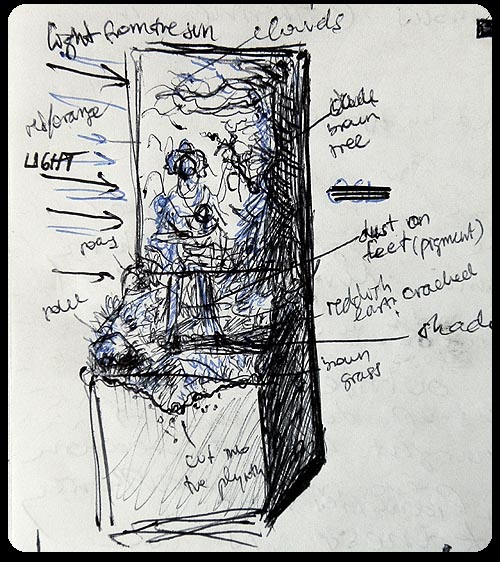 Light from the sun
clouds
red/orange
LIGHT
brown
tree
dust on
feet (pigment)
reddish cracked
earth
shade
brown
grass
cut into
the plynth